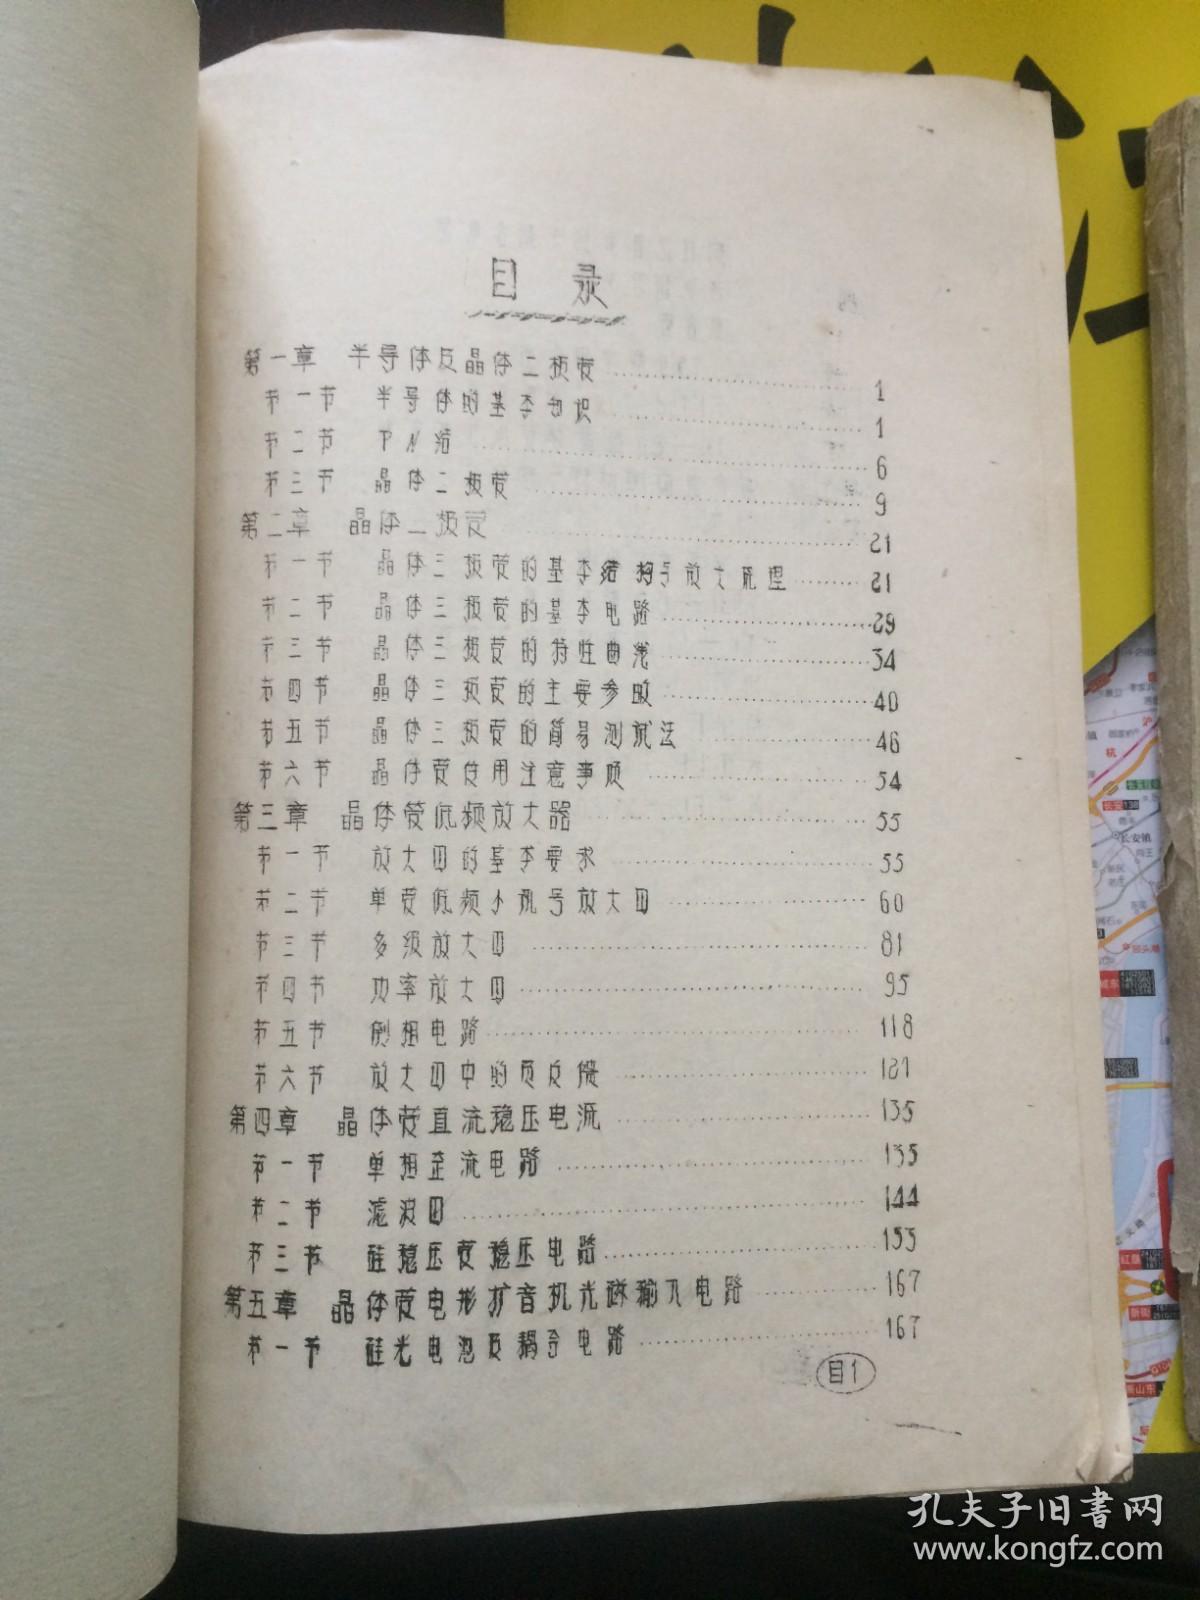 目录
第一章 半导体及晶体二极管 1
第一节 半导体的基本知识 1
第二节 PN结 6
第三节 晶体二极管 9
第二章 晶体三极管 21
第一节 晶体三极管的基本结构与放大原理 21
第二节 晶体三极管的基本电路 29
第三节 晶体三极管的特性曲线 34
第四节 晶体三极管的主要参数 40
第五节 晶体三极管的简易测试法 46
第六节 晶体管使用注意事项 54
第三章 晶体管低频放大器 55
第一节 放大四的基本要求 55
第二节 单管低频小讯号放大四 60
第三节 多级放大四 81
第四节 功率放大四 95
第五节 倒相电路 118
第六节 放大四中的负反馈 121
第四章 晶体管直流稳压电源 135
第一节 单相歪流电路 135
第二节 滤波四 144
第三节 硅稳压管稳压电路 153
第五章 晶体管电影扩音机光磁输入电路 167
第一节 硅光电池及耦合电路 167
目1
孔夫子旧書网
www.kongfz.com